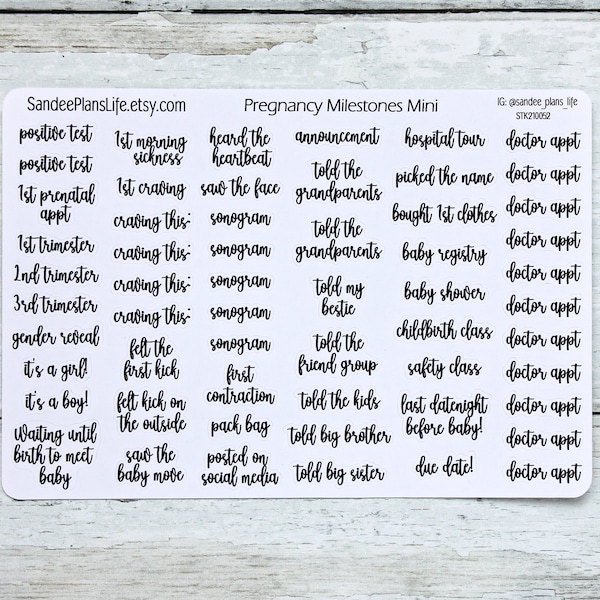 SandeePlansLife.etsy.com
Pregnancy Milestones Mini
IG: @sandee_plans_life
STK210052
positive test
positive test
1st prenatal
appt
1st trimester
2nd trimester
3rd trimester
gender reveal
it's a girl!
it's a boy!
waiting until
birth to meet
baby
1st morning
sickness
1st craving
craving this:
craving this:
craving this:
craving this:
felt the
first kick
felt kick on
the outside
saw the
baby move
heard the
heartbeat
saw the face
sonogram
sonogram
sonogram
sonogram
sonogram
first
contraction
pack bag
posted on
social media
announcement
told the
grandparents
told the
grandparents
told my
bestie
told the
friend group
told the kids
told big brother
told big sister
hospital tour
picked the name
bought 1st clothes
baby registry
baby shower
childbirth class
safety class
last datenight
before baby!
due date!
doctor appt
doctor appt
doctor appt
doctor appt
doctor appt
doctor appt
doctor appt
doctor appt
doctor appt
doctor appt
doctor appt